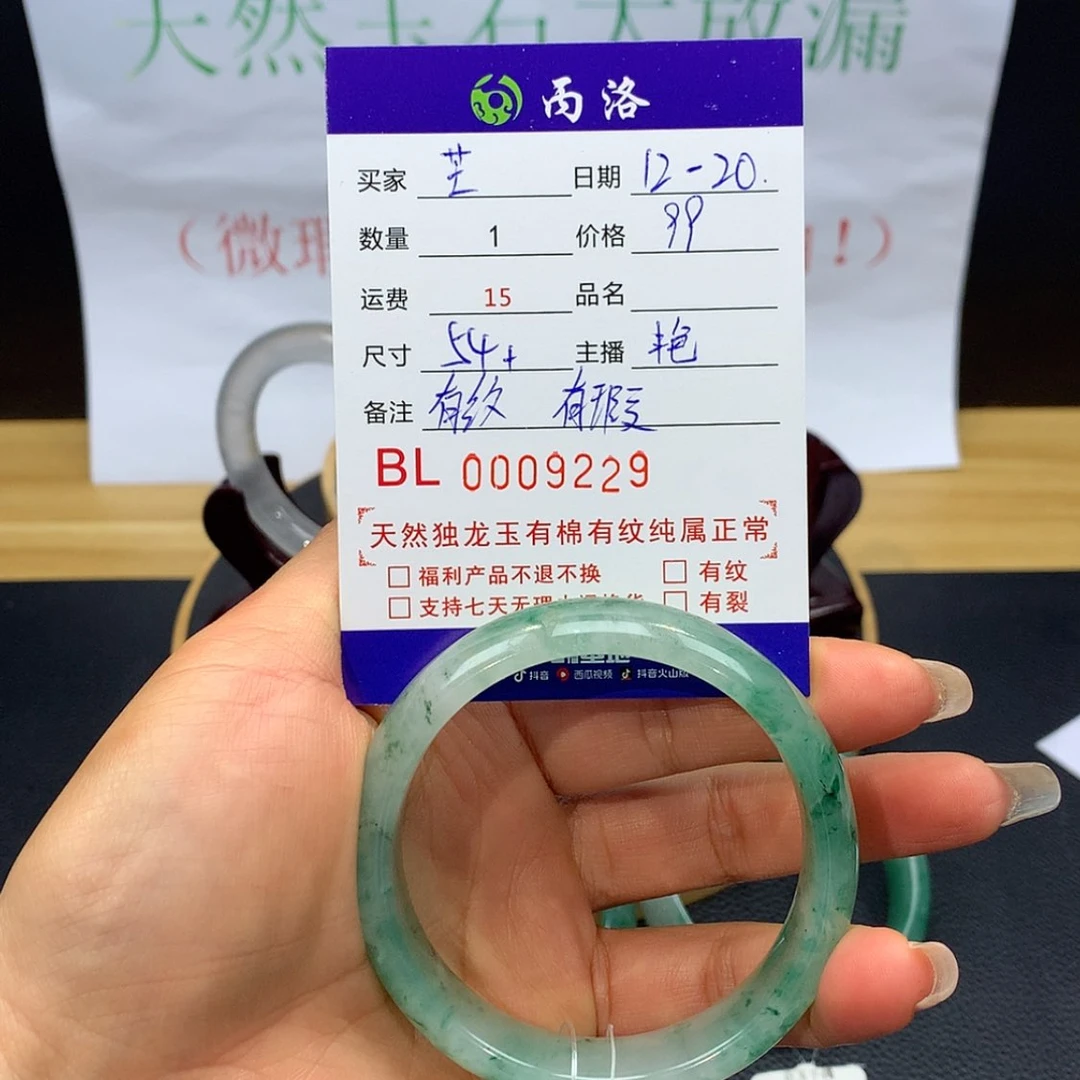 天然玉石大放漏
（微瑕
！）
雨洛
买家 芒 日期 12-20.
数量 1 价格 99
运费 15 品名
尺寸 54+ 主播 艳
备注 有纹 有瑕
BL 0009229
天然独龙玉有棉有纹纯属正常
福利产品不退不换 有纹
支持七天无理 有裂
抖音 西瓜视频 抖音火山版